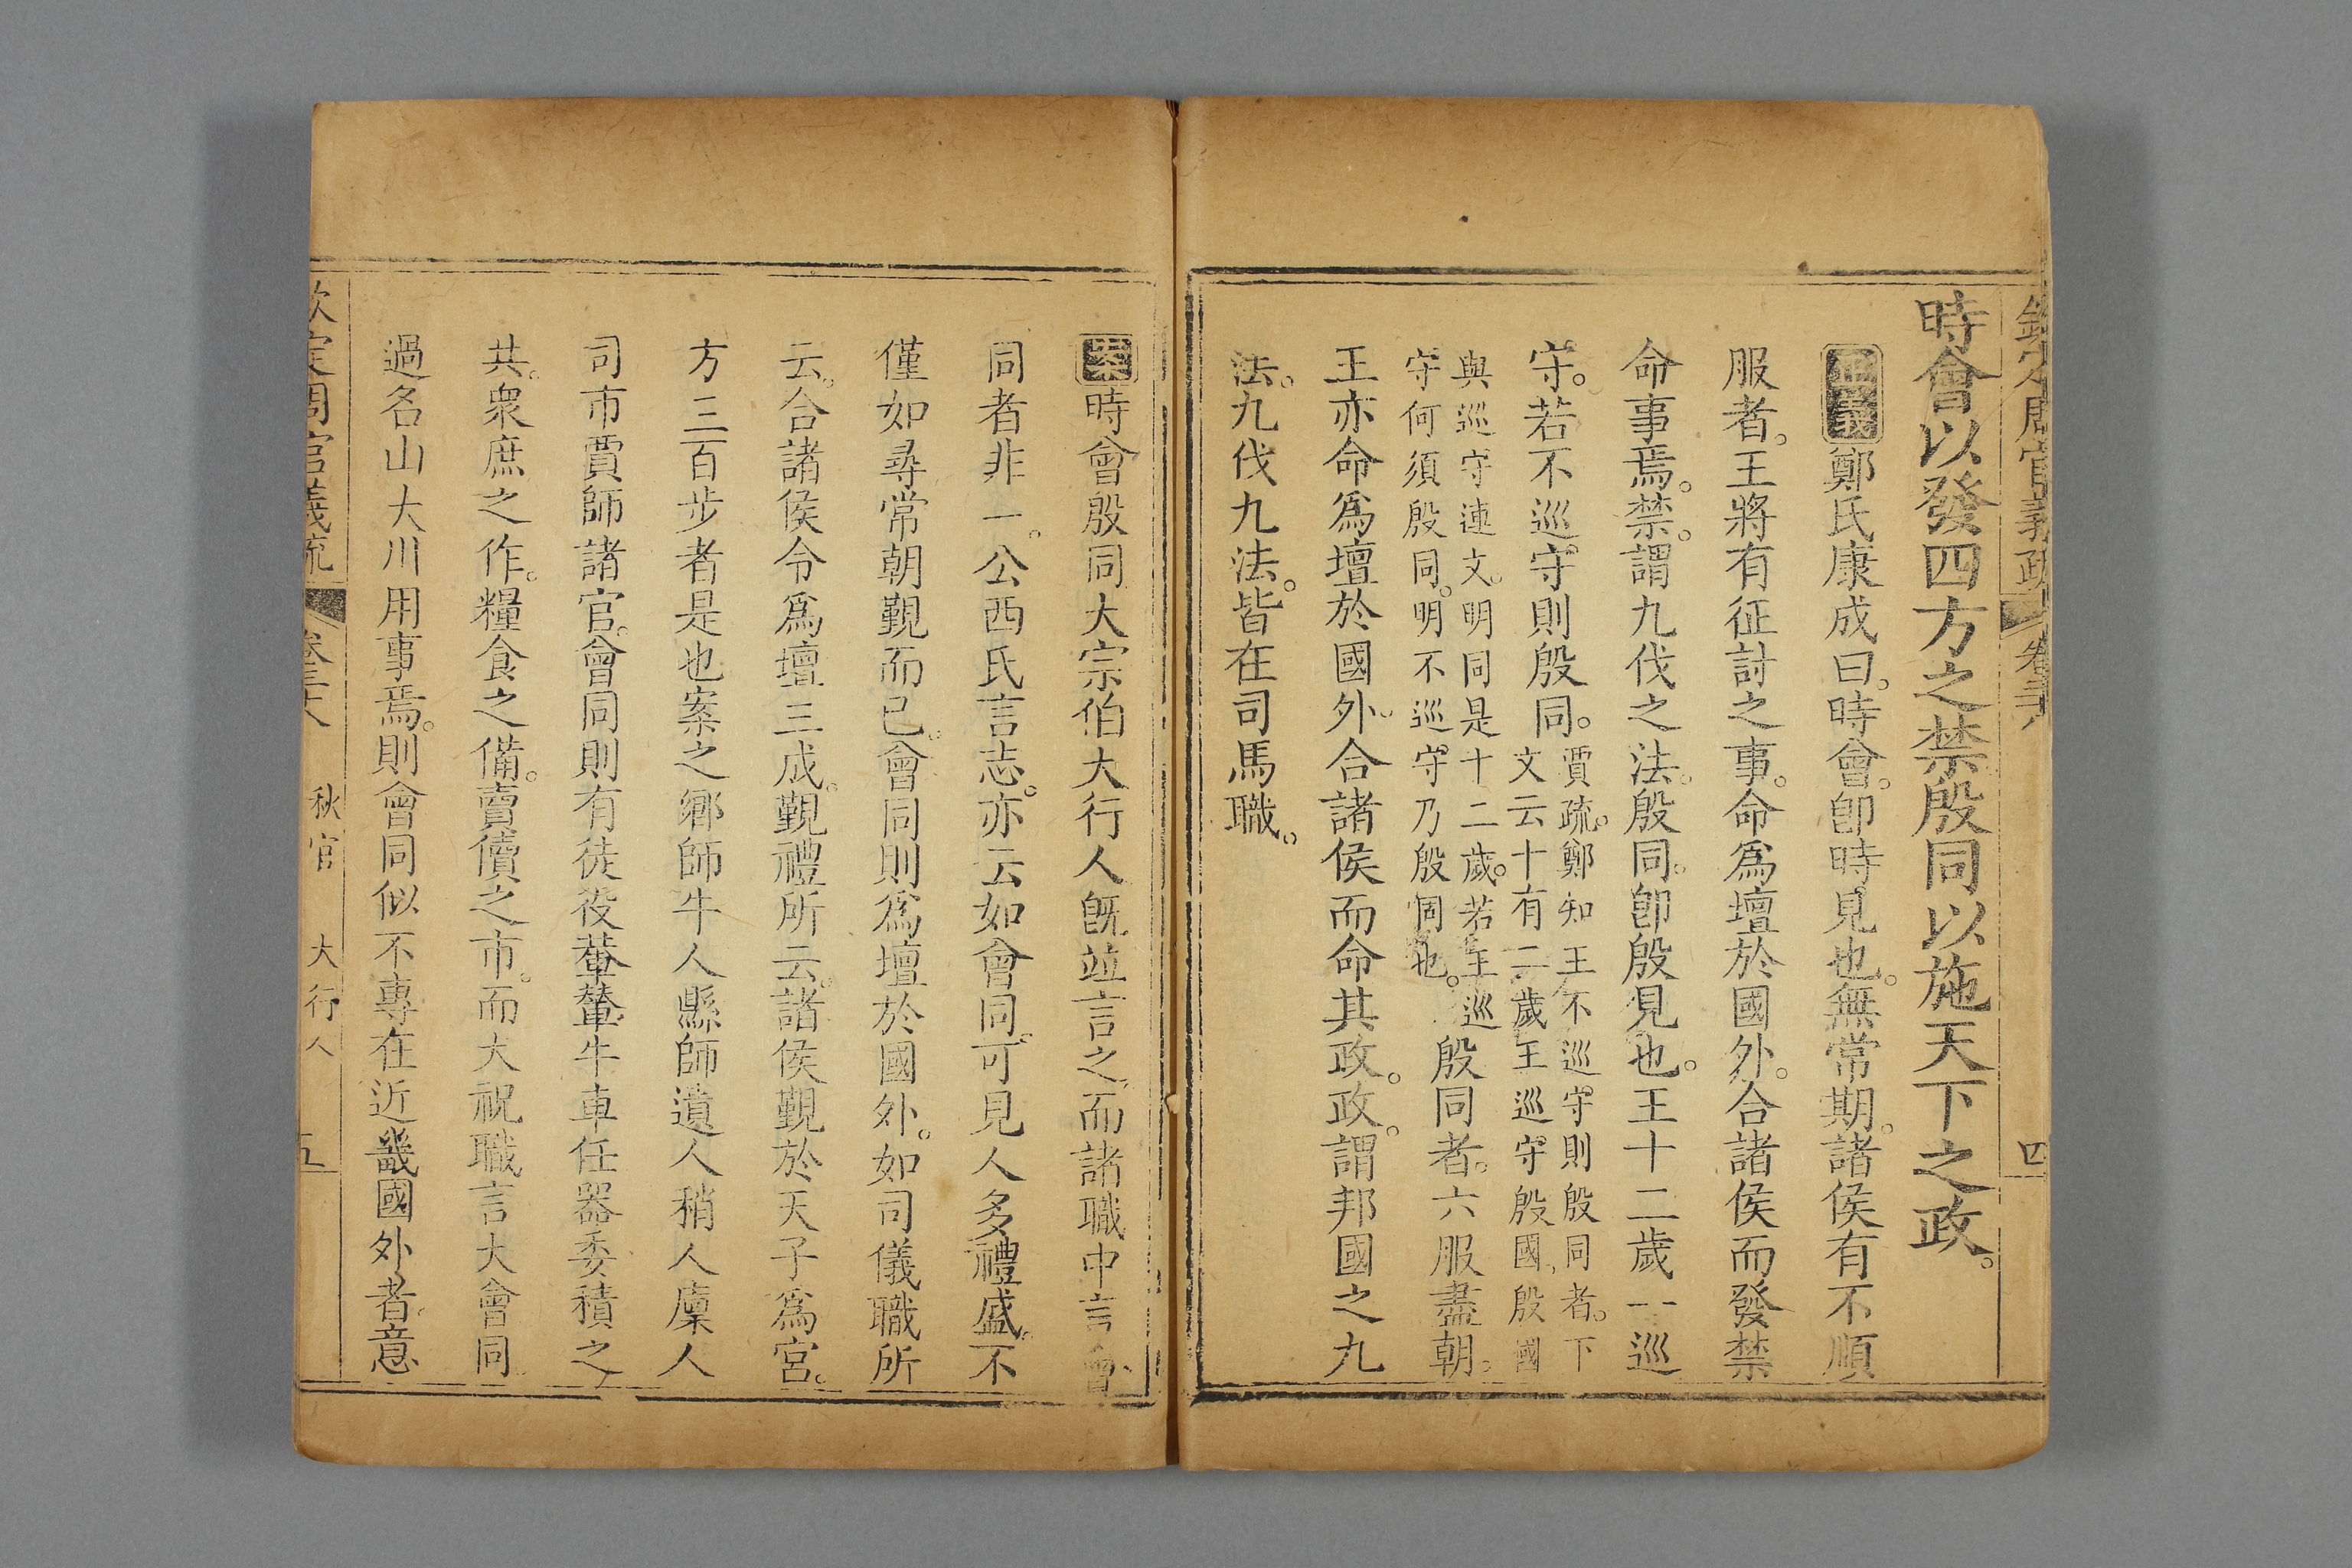 欽定周官義疏 卷三十八 四
時會以發四方之禁殷同以施天下之政。
正義鄭氏康成曰。時會。卽時見也。無常期。諸侯有不順
服者。王將有征討之事。命爲壇於國外。合諸侯而發禁
命事焉。禁。謂九伐之法。殷同。卽殷見也。王十二歲一巡
守。若不巡守則殷同。賈疏。鄭知王不巡守則殷同者。下
文云十有二歲王巡守殷國、殷國
與巡守連文。明同是十二歲。若王巡
守何須殷同。明不巡守乃殷同也。殷同者。六服盡朝。
王亦命爲壇於國外。合諸侯而命其政。政。謂邦國之九
法。九伐九法。皆在司馬職。
案時會殷同大宗伯大行人旣並言之、而諸職中言會、
同者非一。公西氏言志。亦云如會同。可見人多禮盛。不
僅如尋常朝覲而已。會同則爲壇於國外。如司儀職所
云。合諸侯令爲壇三成。覲禮所云。諸侯覲於天子爲宮。
方三百步者是也案之鄉師牛人縣師遺人稍人廩人
司市賈師諸官。會同則有徒役輂輦牛車任器委積之
共。衆庶之作。糧食之備。賣儥之市。而大祝職言大會同
過名山大川用事焉。則會同似不專在近畿國外者。意
欽定周官義疏 卷三十八 秋官 大行人 五